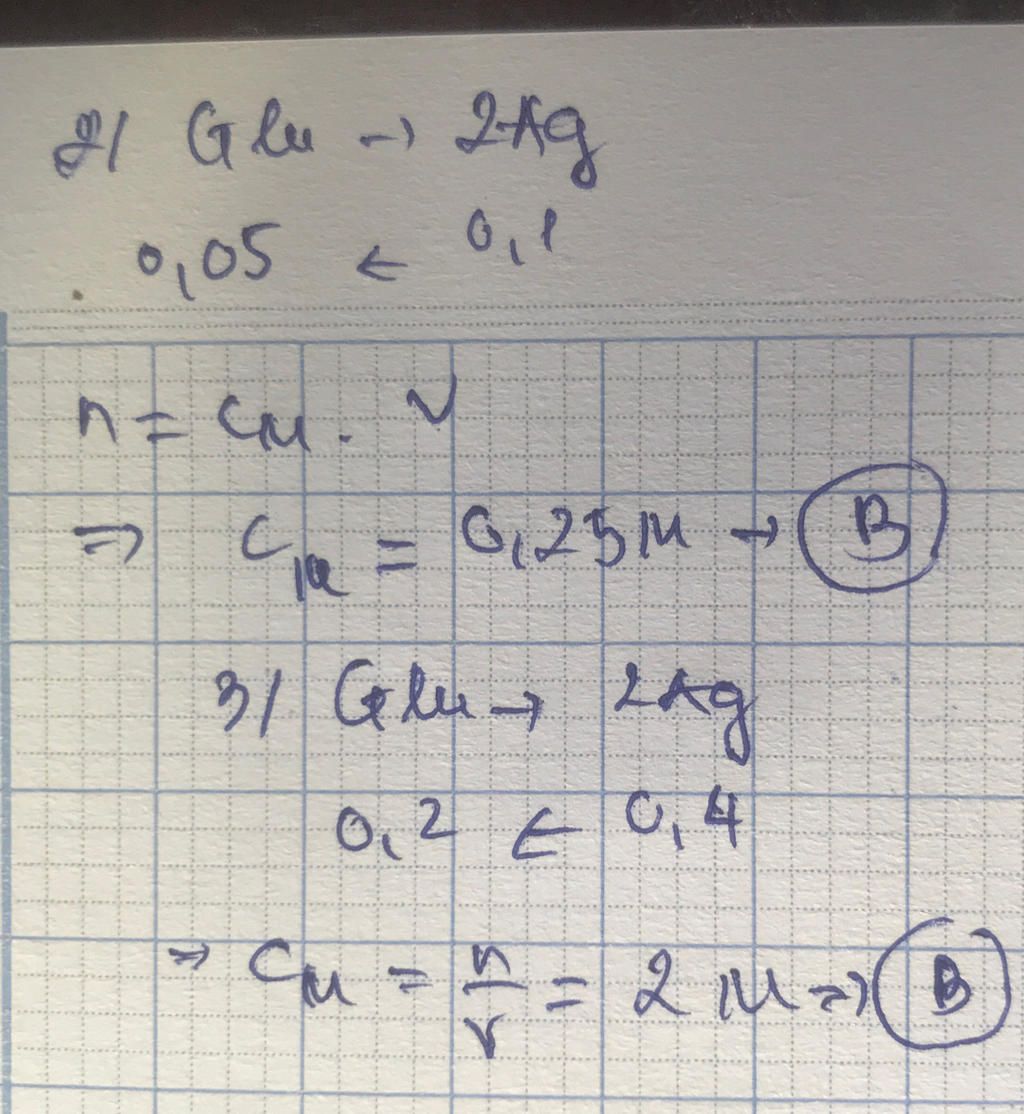 2/ Glu → 2Ag
0,05 ← 0,1
n = CM . V
⇒ CM = 0,25M → B
3/ Glu → 2Ag
0,2 ← 0,4
⇒ CM = n/V = 2M ⇒ B